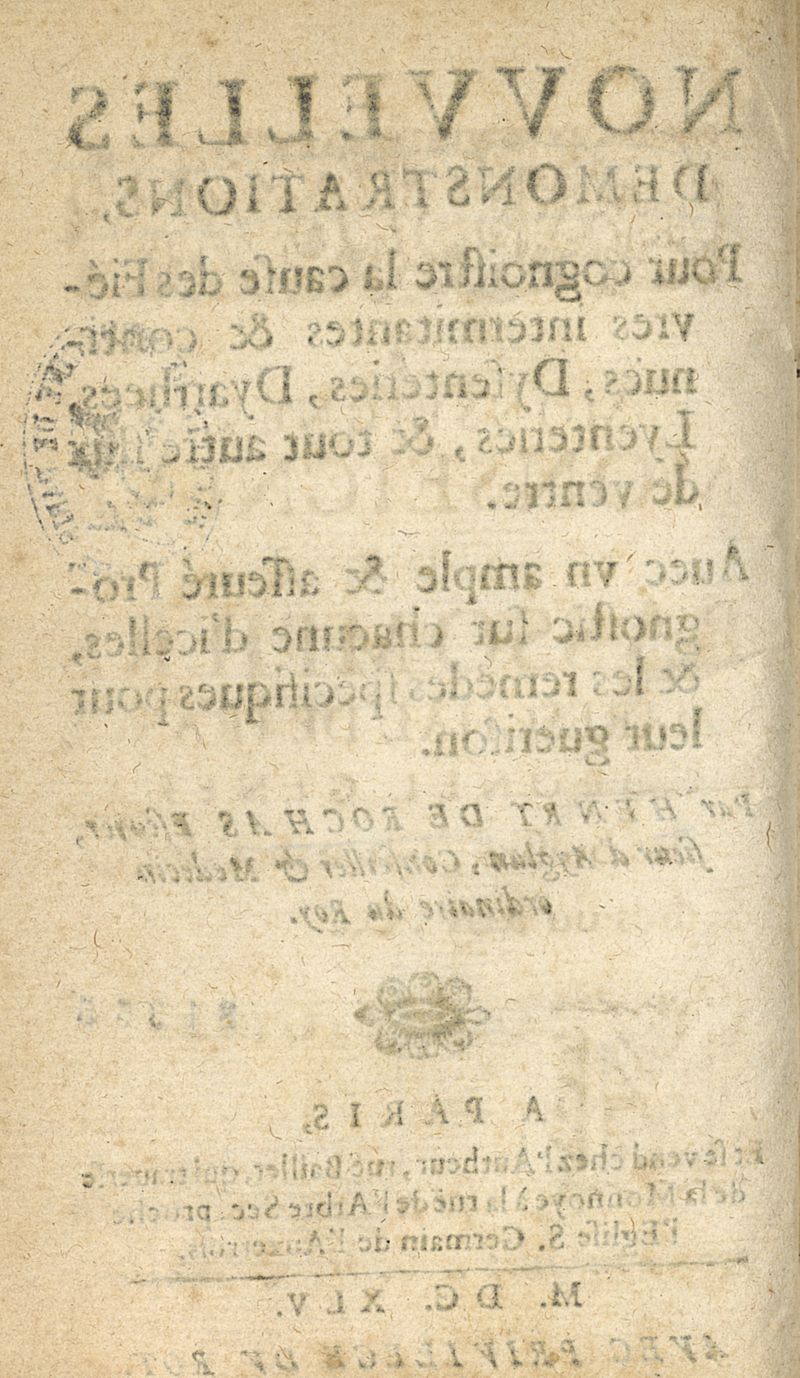 NOVVELLES
DEMONSTRATIONS,
Pour cognoistre la cause des Fié-
vres intermitantes & conti-
nuës, Dysenteries, Dyarrhées,
Lyenteries, & tout autre flux
de ventre.
Auec vn ample & asseuré Pro-
gnostic sur chacune d'icelles,
& les remedes specifiques pour
leur guerison.
Par HENRY DE ROCHAS
sieur d'Ayglun, Conseiller & Medecin
ordinaire du Roy.
A PARIS,
Et se vend chez l'Autheur, ruë Baillet,
de la Monnoye à la ruë de l'Arbre Sec, proche
l'Eglise S. Germain de l'Auxerrois.
M. DC. XLV.
AVEC PRIVILEGE DV ROY.